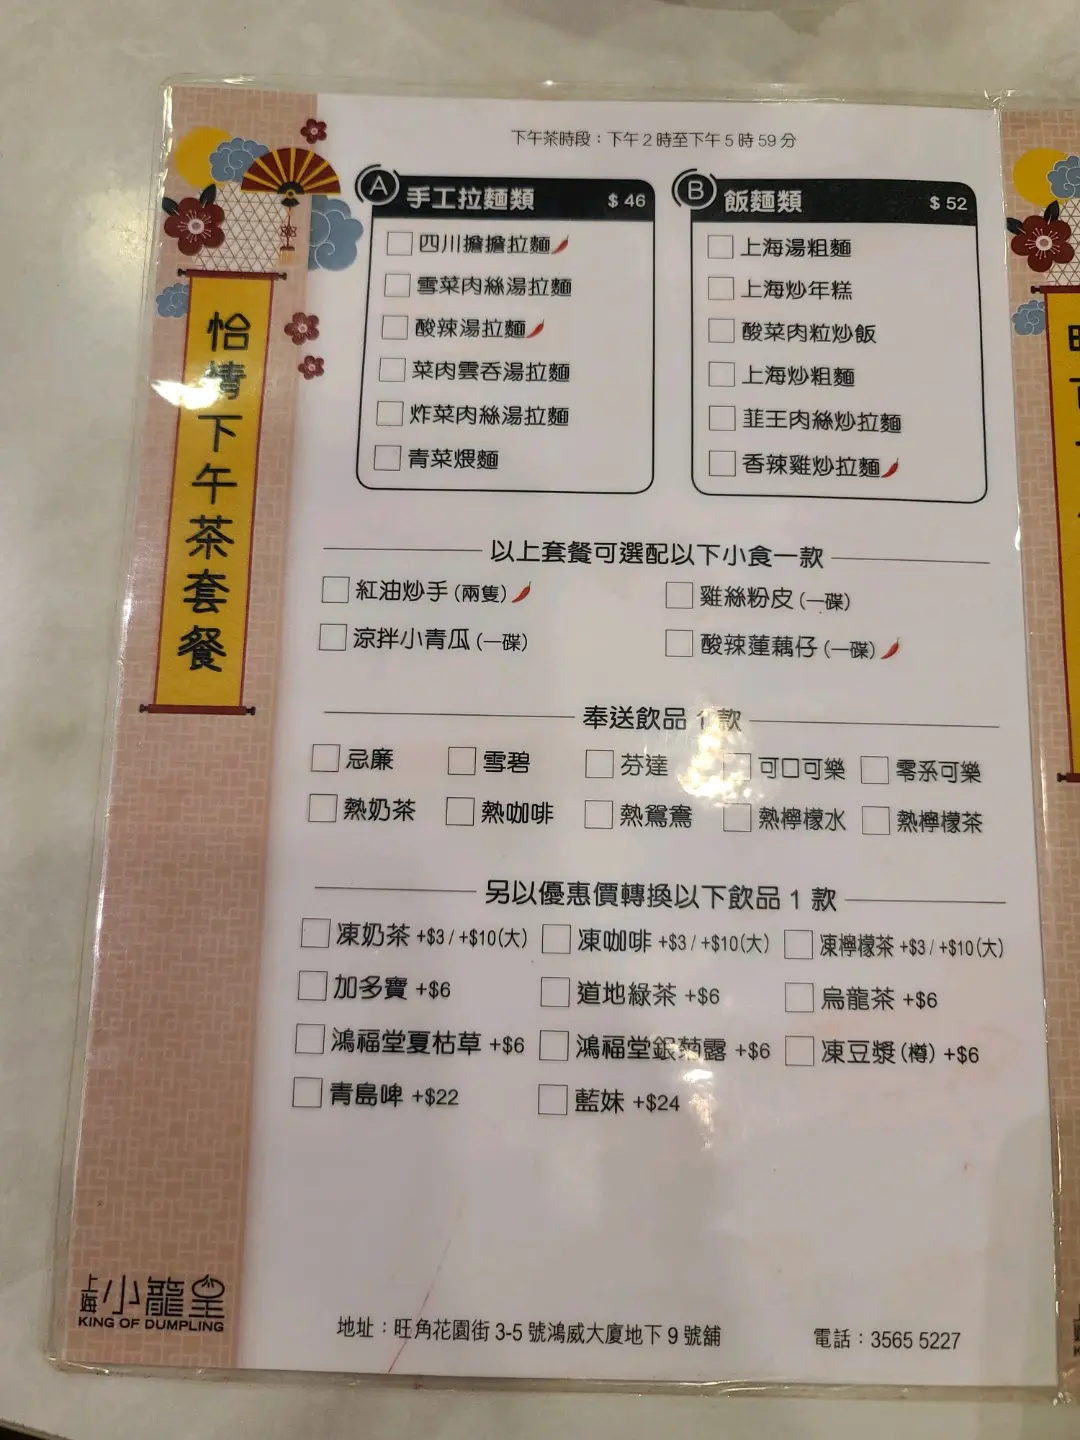 下午茶時段：下午 2 時至下午 5 時 59 分
怡情下午茶套餐
A 手工拉麵類 $ 46
四川擔擔拉麵
雪菜肉絲湯拉麵
酸辣湯拉麵
菜肉雲吞湯拉麵
炸菜肉絲湯拉麵
青菜煨麵
B 飯麵類 $ 52
上海湯粗麵
上海炒年糕
酸菜肉粒炒飯
上海炒粗麵
韮王肉絲炒拉麵
香辣雞炒拉麵
以上套餐可選配以下小食一款
紅油炒手 (兩隻) 雞絲粉皮 (一碟)
涼拌小青瓜 (一碟) 酸辣蓮藕仔 (一碟)
奉送飲品 1 款
忌廉 雪碧 芬達 可口可樂 零系可樂
熱奶茶 熱咖啡 熱鴛鴦 熱檸檬水 熱檸檬茶
另以優惠價轉換以下飲品 1 款
凍奶茶 +$3 / +$10(大) 凍咖啡 +$3 / +$10(大) 凍檸檬茶 +$3 / +$10(大)
加多寶 +$6 道地綠茶 +$6 烏龍茶 +$6
鴻福堂夏枯草 +$6 鴻福堂銀菊露 +$6 凍豆漿 (樽) +$6
青島啤 +$22 藍妹 +$24
上海小籠皇
KING OF DUMPLING
地址：旺角花園街 3-5 號鴻威大廈地下 9 號舖 電話：3565 5227